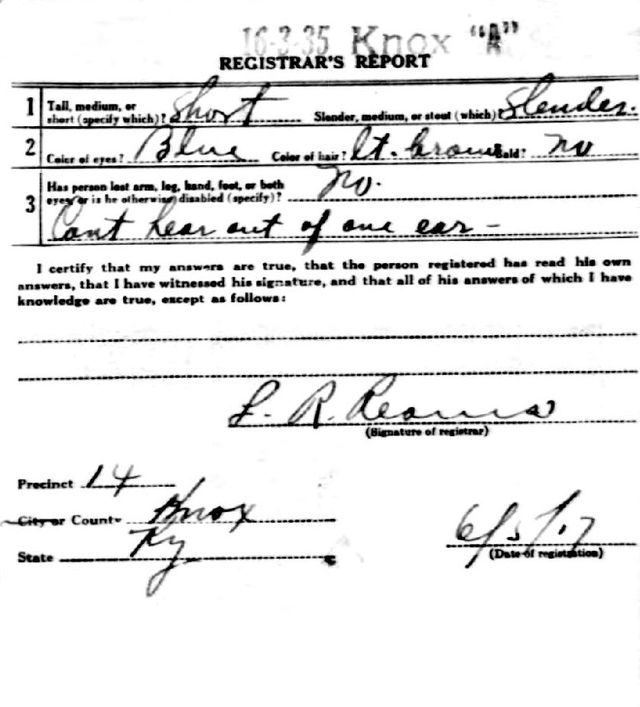 16-3-35 Knox "A"
REGISTRAR'S REPORT
1 Tall, medium, or short (specify which)? Short Slender, medium, or stout (which)? Slender.
2 Color of eyes? Blue Color of hair? lt. brown Bald? no
3 Has person lost arm, leg, hand, foot, or both eyes, or is he otherwise disabled (specify)? no.
Cant hear out of one ear -
I certify that my answers are true, that the person registered has read his own
answers, that I have witnessed his signature, and that all of his answers of which I have
knowledge are true, except as follows:
L. R. Reams
(Signature of registrar)
Precinct 14
City or County Knox
State Ky
6/5/17
(Date of registration)